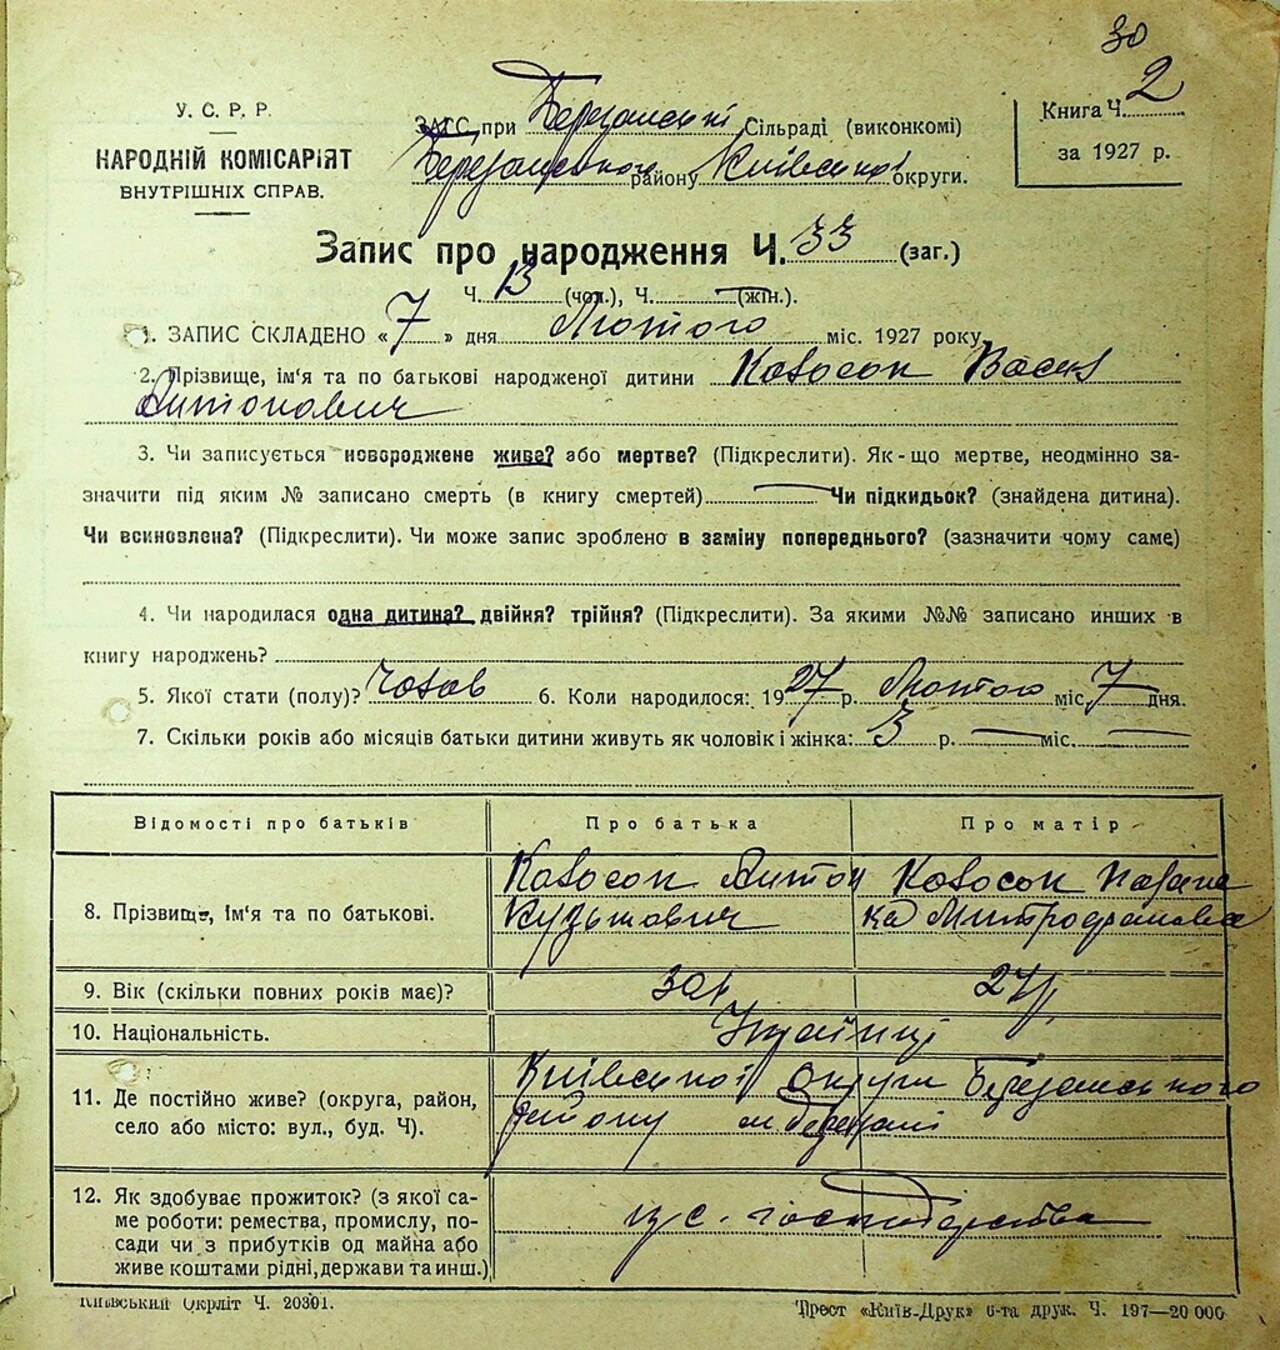 30
У. С. Р. Р.
НАРОДНІЙ КОМІСАРІЯТ
ВНУТРІШНІХ СПРАВ.
ЗАГС при Березанській Сільраді (виконкомі)
Березанського району Київської округи.
Книга Ч. 2
за 1927 р.
Запис про народження Ч. 33 (заг.)
Ч. 13 (чол.), Ч. — (жін.).
1. ЗАПИС СКЛАДЕНО «7» дня Лютого міс. 1927 року.
2. Прізвище, ім'я та по батькові народженої дитини Колосок
Антонович
3. Чи записується новороджене живе? або мертве? (Підкреслити). Як-що мертве, неодмінно за-
значити під яким № записано смерть (в книгу смертей) — Чи підкидьок? (знайдена дитина).
Чи всиновлена? (Підкреслити). Чи може запис зроблено в заміну попереднього? (зазначити чому саме)
4. Чи народилася одна дитина? двійня? трійня? (Підкреслити). За якими №№ записано инших в
книгу народжень?
5. Якої стати (полу)? 6. Коли народилося: 1927 р. Лютого міс. 7 дня.
7. Скільки років або місяців батьки дитини живуть як чоловік і жінка: 3 р. — міс. —
Відомості про батьків Про батька Про матір
8. Прізвище, ім'я та по батькові.
Колосок Антон
Кузьмович
Колосок Палаж
ка Митрофановна
9. Вік (скільки повних років має)? 30 27 р.
10. Національність. Українці
11. Де постійно живе? (округа, район,
село або місто: вул., буд. Ч).
Київської округи Березанського
району м Березані
12. Як здобуває прожиток? (з якої са-
ме роботи: ремества, промислу, по-
сади чи з прибутків од майна або
живе коштами рідні, держави та инш.)
з с. господарства
Київський Окрліт Ч. 20301.
Трест «Київ-Друк» 6-та друк. Ч. 197—20 000